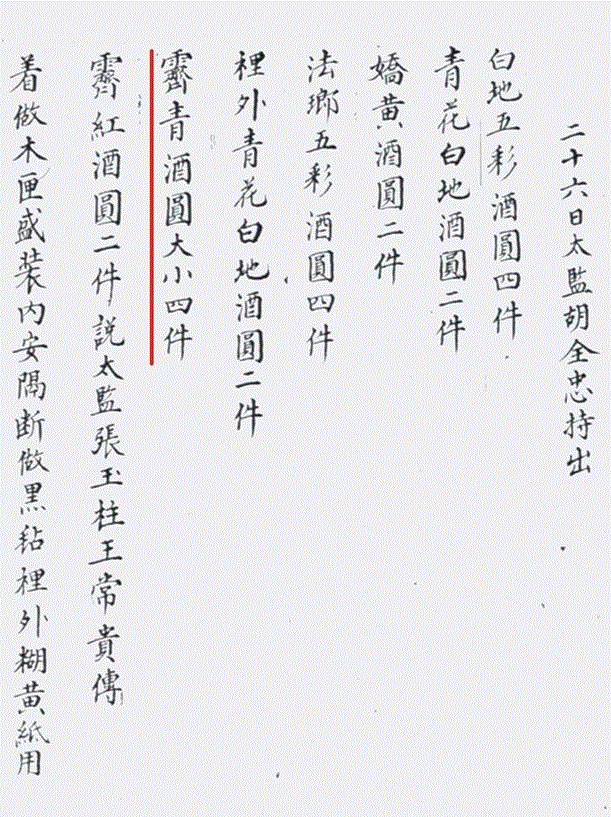 二十六日太監胡全忠持出
白地五彩酒圓四件
青花白地酒圓二件
嬌黃酒圓二件
法瑯五彩酒圓四件
裡外青花白地酒圓二件
霽青酒圓大小四件
霽紅酒圓二件說太監張玉柱王常貴傳
着做木匣盛装內安隔断做黑毡裡外糊黃紙用